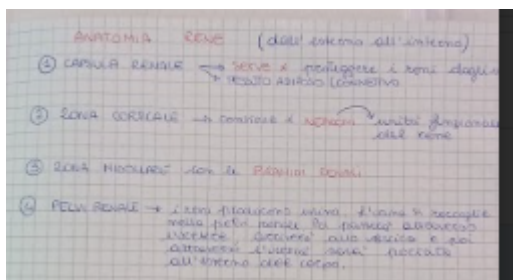 ANATOMIA RENE (dall'esterno all'interno)
① CAPSULA RENALE → SERVE x proteggere i reni dagli
→ TESSUTO ADIPOSO/CONNETTIVO
② ZONA CORTICALE → contiene x NEFRONI unità funzionale
del rene
③ ZONA MIDOLLARE con le PIRAMIDI RENALI
④ PELVI RENALE → i reni producono urina. L'urina si raccoglie
nella pelvi renale. Poi attraverso
l'uretere arriverà alla vescica e poi
attraverso l'uretra sarà portata
all'esterno del corpo.